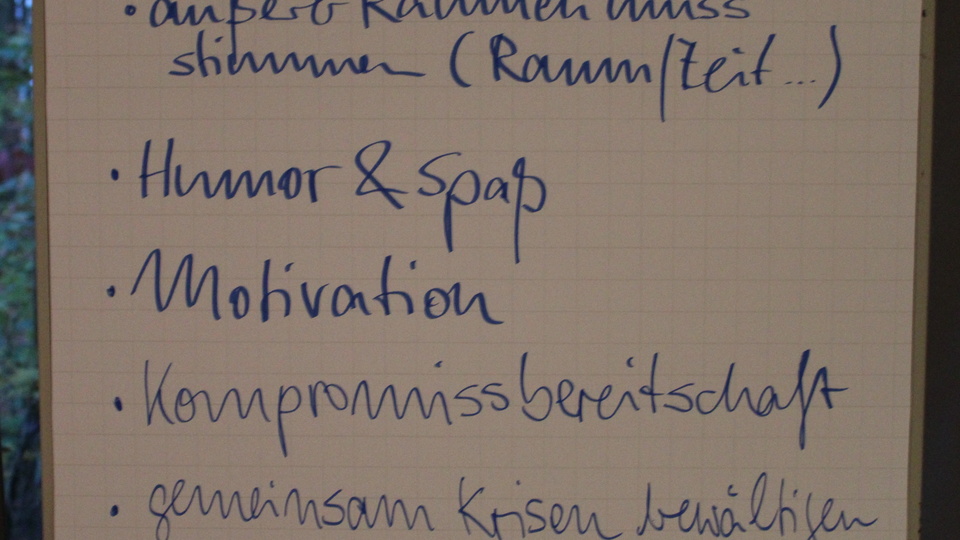 • äußere Rahmen muss
stimmen (Raum/Zeit...)
• Humor & Spaß
• Motivation
• Kompromissbereitschaft
• gemeinsam Krisen bewältigen